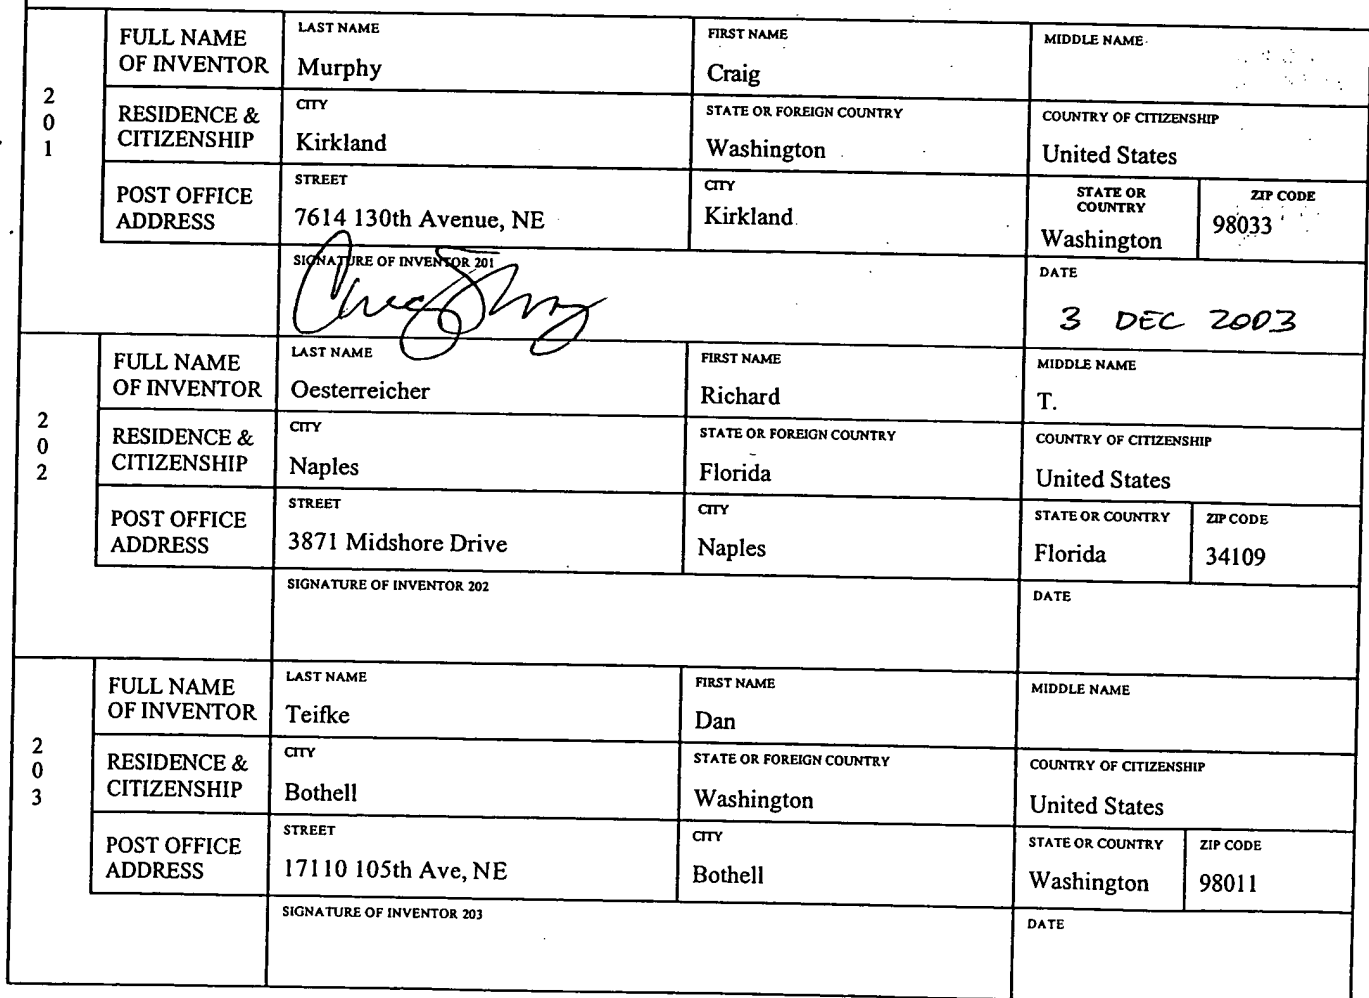 FULL NAME OF INVENTOR
LAST NAME
Murphy
FIRST NAME
Craig
MIDDLE NAME
201
RESIDENCE & CITIZENSHIP
CITY
Kirkland
STATE OR FOREIGN COUNTRY
Washington
COUNTRY OF CITIZENSHIP
United States
POST OFFICE ADDRESS
STREET
7614 130th Avenue, NE
CITY
Kirkland
STATE OR COUNTRY
Washington
ZIP CODE
98033
SIGNATURE OF INVENTOR 201
DATE
3 DEC 2003
FULL NAME OF INVENTOR
LAST NAME
Oesterreicher
FIRST NAME
Richard
MIDDLE NAME
T.
202
RESIDENCE & CITIZENSHIP
CITY
Naples
STATE OR FOREIGN COUNTRY
Florida
COUNTRY OF CITIZENSHIP
United States
POST OFFICE ADDRESS
STREET
3871 Midshore Drive
CITY
Naples
STATE OR COUNTRY
Florida
ZIP CODE
34109
SIGNATURE OF INVENTOR 202
DATE
FULL NAME OF INVENTOR
LAST NAME
Teifke
FIRST NAME
Dan
MIDDLE NAME
203
RESIDENCE & CITIZENSHIP
CITY
Bothell
STATE OR FOREIGN COUNTRY
Washington
COUNTRY OF CITIZENSHIP
United States
POST OFFICE ADDRESS
STREET
17110 105th Ave, NE
CITY
Bothell
STATE OR COUNTRY
Washington
ZIP CODE
98011
SIGNATURE OF INVENTOR 203
DATE